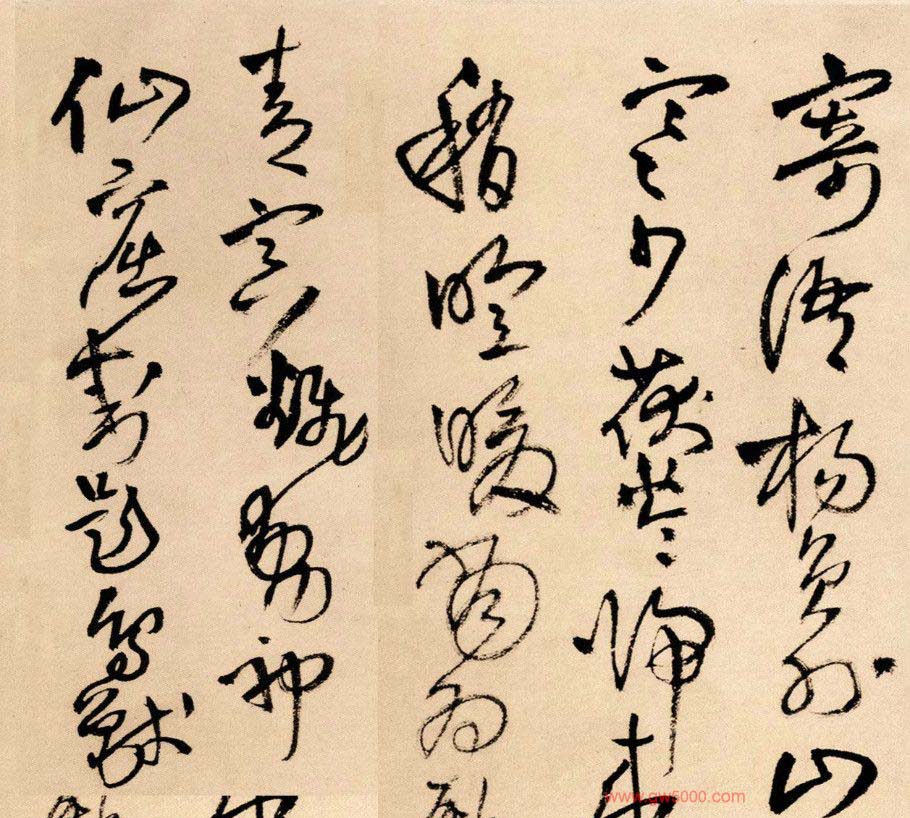 寄語楊員外山
寒少茯苓歸來
稍暄暖當為
青冥翻動神
仙窟封題鳥獸
www.gw5000.com